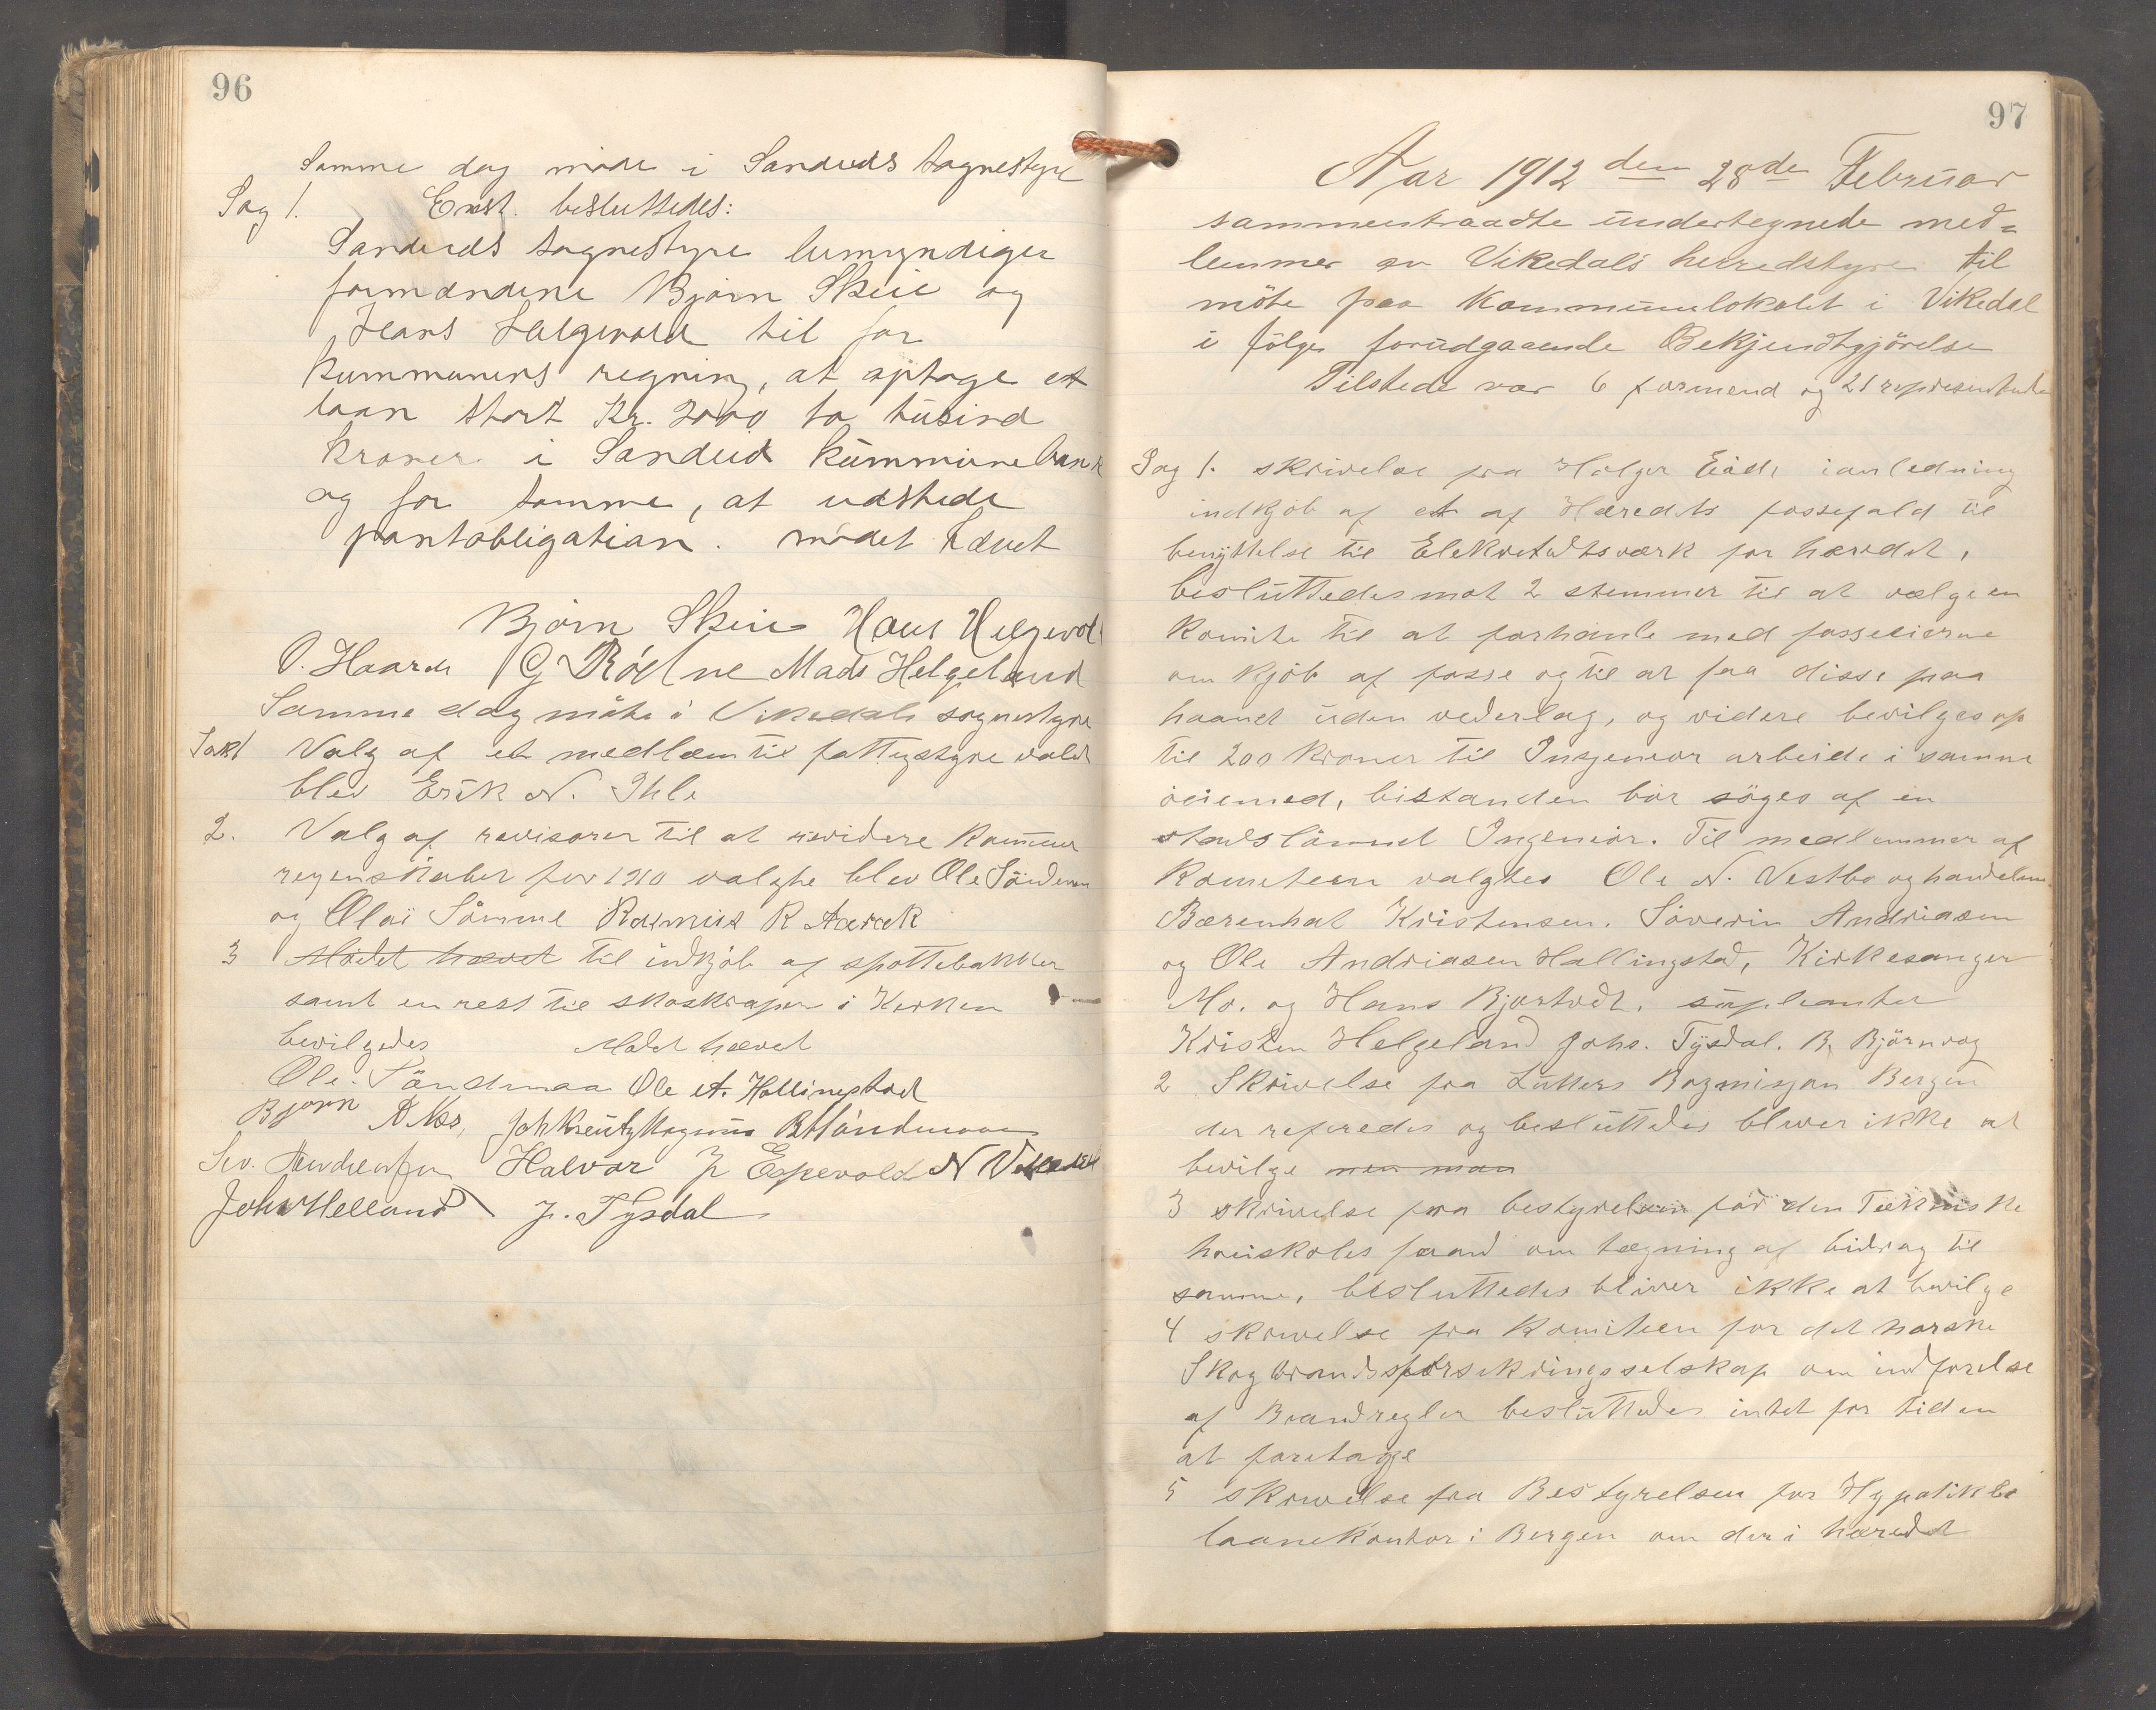 96
Samme dag møde i Sandeids sognestyre
Sag 1. Enst. besluttedes:
Sandeids sognestyre bemyndiger
formændene Bjørn Skeie og
Hans Helgevold til for
kummunens regning, at optage et
laan stort Kr. 2000 to tusind
kroner i Sandeid kummunebank
og for samme, at udstede
pantobligation. mødet hævet
Bjørn Skeie Hans Helgevold
O. Haaree G Rødne Mads Helgeland
Samme dag møte i Vikedals sognestyre
Sak 1 Valg af et medlem til fattigstyre valdt
blev Erik N. Ihle
2. Valg af revisorer til at revidere Kommune
regenskaber for 1910 valgte blev Ole Söndenaa
og Olai Sömme Rasmus R
3 Mødet hævet til indkjöb af spøttebakker
samt en rest til skoskraper i Kirken
bevilgedes Mødet hævet
Ole Söndenaa Ole A. Hallingstad
Bjørn Joh Kreutz Magnus B Söndenaa
Sev. Andreasen Halvor J. Espevold N
John Helland J. Tysdal
97
Aar 1912 den 28de Februar
sammentraadte undertegnede med=
lemmer av Vikedals herredstyre til
möte paa Kommunelokalet i Vikedal
i fölge forudgaaende Bekjendtgjörelse
Tilstede var 6 formend og 21 representanter
Sag 1. skrivelse fra Holger Eide ianledning
indkjöb af et af Heredets fossefald til
benyttelse til Elekretetsværk for hærdet,
besluttedes mot 2 stemmer til at vælge en
Komite til at forhanle med fosseeierne
om kjöb af fosse og til at faa disse paa
haand uden vederlag, og videre bevilges op
til 200 kroner til Ingeniør arbeide i samme
öiemed, bistanden bør söges af en
stadslönnet Ingeniør. Til medlemmer af
Kometeen valgtes Ole N. Vestbø og handelsm.
Bærenhat Kristensen. Söverin Andriasen
og Ole Andriasen Hallingstad, Kirkesanger
Mo. og Hans Bjørtvedt. supleanter
Kristen Helgeland Johs. Tysdal. B. Björnvag
2 Skrivelse fra Luthers Bogmisjon Bergen
der refiredes og besluttedes bliver ikke at
bevilge men man
3 skrivelse fra bestyrelsen för den Tekniske
höiskoles fond om tegning af bidrag til
samme, besluttedes bliver ikke at bevilge
4 skrivelse fra Komiteen for det norske
Skogbrandsforsikringsselskap om indförelse
af Brandregler besluttedes intet for tiden
at foretage
5 skrivelse fra Bestyrelsen for Hypotikbe
laanekontor i Bergen om der i hæredet